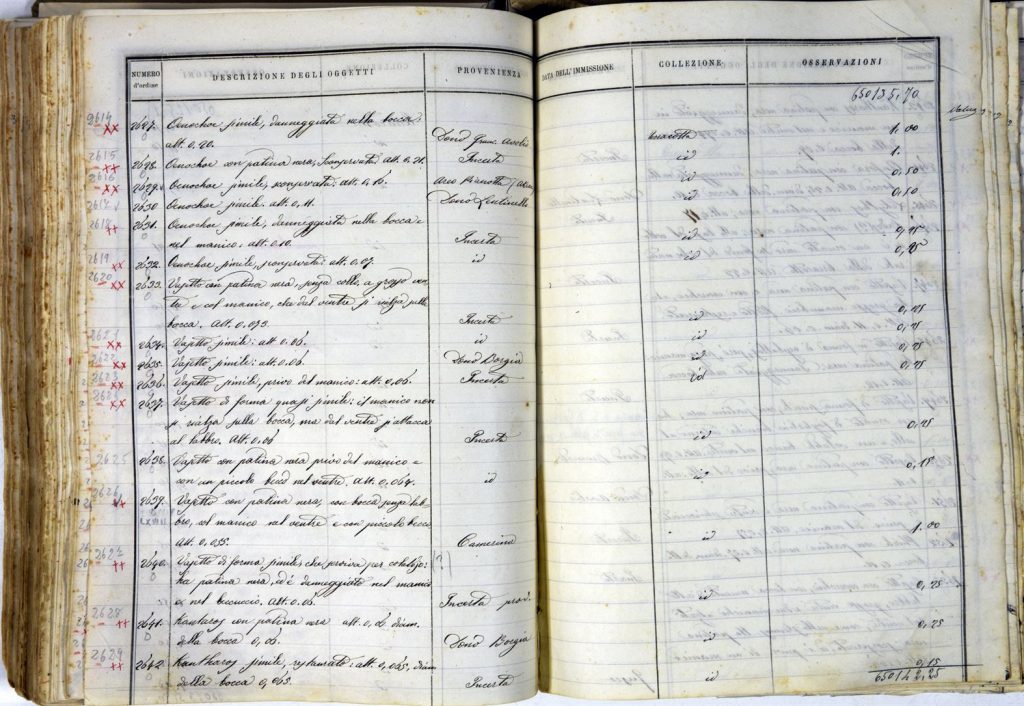 NUMERO d'ordine
DESCRIZIONE DEGLI OGGETTI
PROVENIENZA
DATA DELL'IMMISSIONE
COLLEZIONE
OSSERVAZIONI
65013 5,70
2614 xx 2627. Oenochoe simile, danneggiata nella bocca.
alt. 0,20. Dono Franc. terracotta 1.00
2615 xx 2628. Oenochoe con patina nera; sconservata. alt. 0,21. Incerta id 1.
2616 xx 2629. Oenochoe simile, sconservata: alt. 0,16. id 0,50
2617 2630 Oenochoe simile: alt. 0,11. Dono id 0,50
2618 2631. Oenochoe simile, danneggiata nella bocca e
nel manico: alt. 0.10. Incerta id 0,25
2619 xx 2632. Oenochoe simile, sconservata: alt. 0,07. id id 0,25
2620 xx 2633. Vasetto con patina nera, senza collo, a grosso ven-
tre e col manico, che dal ventre si rialza sulla
bocca. Alt. 0,073. Incerta id 0,25
2621 xx 2634. Vasetto simile: alt. 0,06. id id 0,25
2622 xx 2635. Vasetto simile: alt. 0,06. Dono Borgia id 0,25
2623 xx 2636. Vasetto simile, privo del manico: alt. 0,06. Incerta id 0,25
xx 2637. Vasetto di forma quasi simile: il manico non
si rialza sulla bocca, ma dal ventre s'attacca
al labbro. Alt. 0,06 Incerta id 0,25
2625 2638. Vasetto con patina nera privo del manico e
con un piccolo becco nel ventre. Alt. 0,064. id id 0,25
2626 2639. Vasetto con patina nera, con bocca senza lab-
bro, col manico nel ventre e con piccolo becco
Alt. 0,055. Camerino id 1.00
2627 2640. Vasetto di forma simile,
ha patina nera, ed è danneggiato nel manico
e nel beccuccio. Alt. 0,06. Incerta prov. id 0,25
2628 2641. Kantaros con patina nera alt. 0,06 diam.
della bocca 0,06. Dono Borgia id 0,25
2629 xx 2642. Kantharos simile, restaurato: alt. 0,065, diam
della bocca 0,063. Incerta id 0,15
65014 2,25